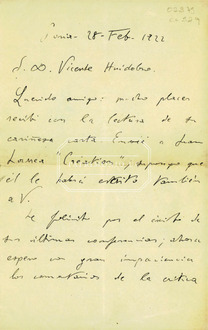 Soria - 28 - Feb. 1922
S. D. Vicente Huidobro.
Querido amigo: mucho placer
recibí con la lectura de su
cariñosa carta. Envié a Juan
Larrea "Creation"; supongo que
él le habrá escrito también
a V.
Le felicito por el éxito de
sus últimas conferencias; ahora
espero con gran impaciencia
los comentarios de la crítica